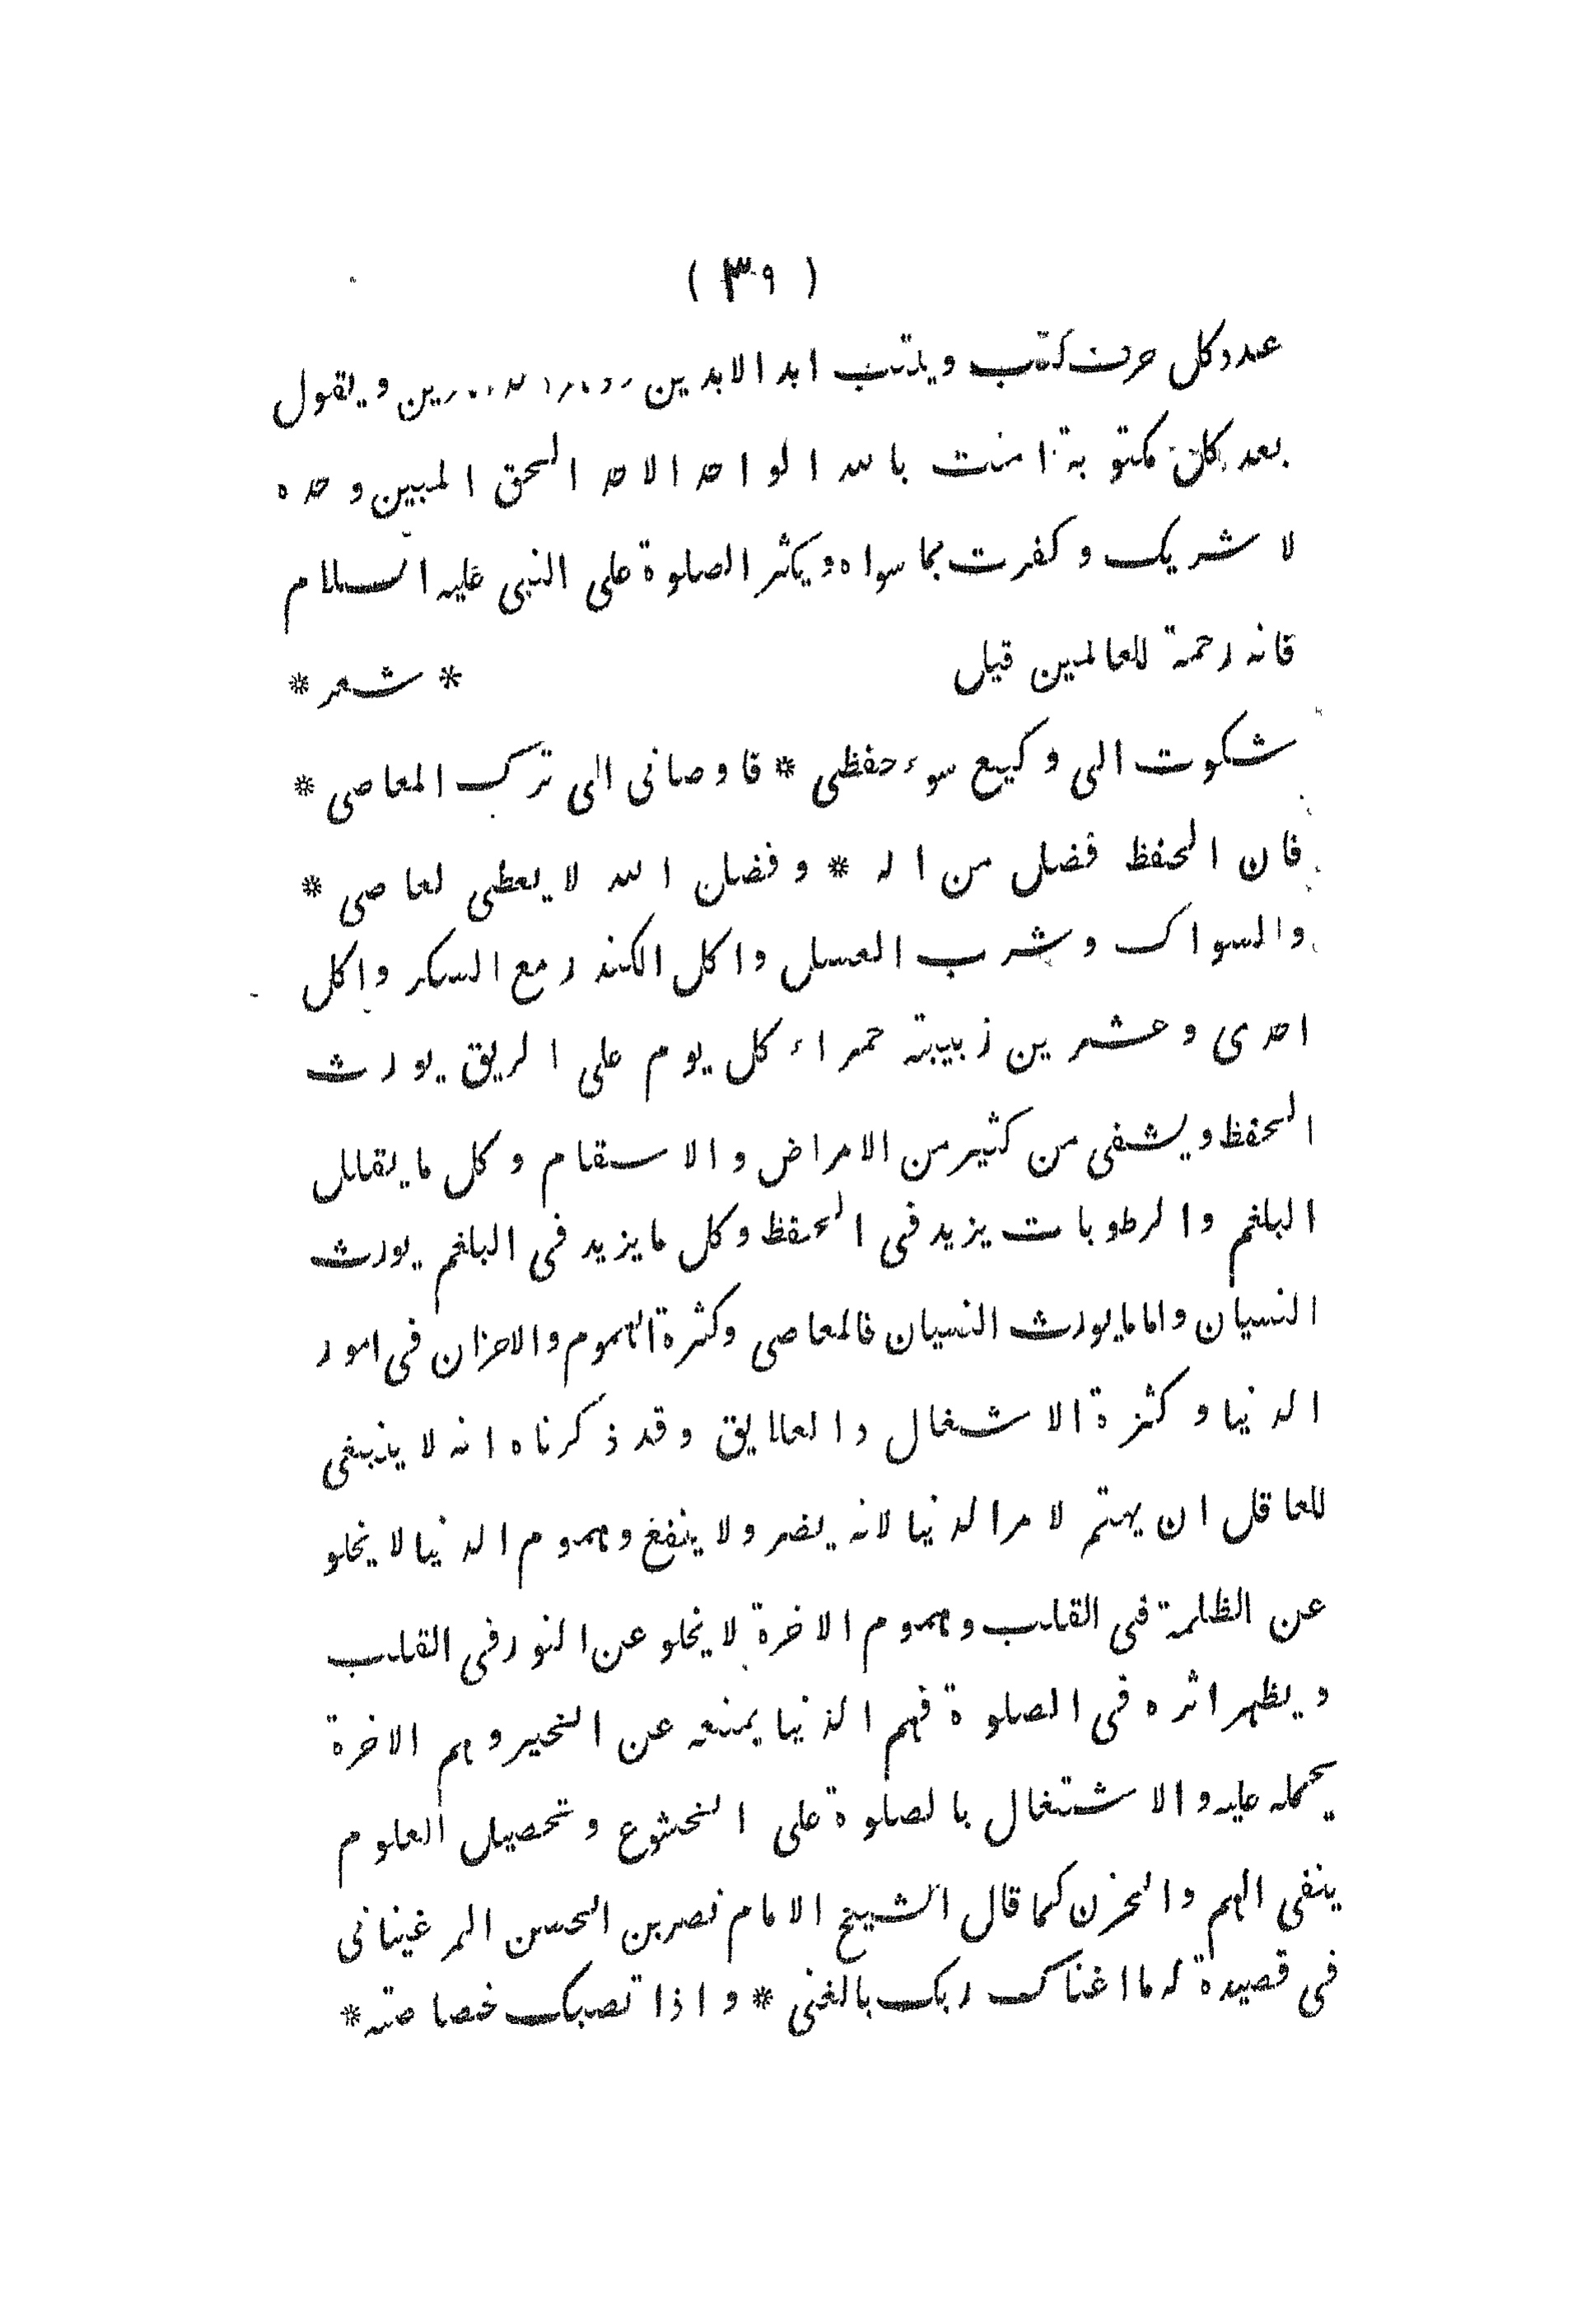 ( ٣٩ )
عدد كل حرف كتب ويكتب ابد الابدين ودهر الداهرين ويقول
بعد كل مكتوبة امنت بالله الواحد الاحد الحق المبين وحده
لا شريك وكفرت بما سواه ويكثر الصلوة على النبى عليه السلام
فانه رحمة للعالمين قيل * شعر *
شكوت الى وكيع سوء حفظى * فاوصانى الى ترك المعاصى *
فان الحفظ فضل من اله * وفضل الله لا يعطى لعاصى *
والسواك وشرب العسل واكل الكندر مع السكر واكل
احدى وعشرين زبيبة حمراء كل يوم على الريق يورث
الحفظ ويشفى من كثير من الامراض والاسقام وكل ما يقلل
البلغم والرطوبات يزيد فى الحفظ وكل ما يزيد فى البلغم يورث
النسيان واما ما يورث النسيان فالمعاصى وكثرة الهموم والاحزان فى امور
الدنيا وكثرة الاشغال والعلايق وقد ذكرناه انه لا ينبغى
للعاقل ان يهتم لامر الدنيا لانه يضر ولا ينفع وهموم الدنيا لا يخلو
عن الظلمة فى القلب وهموم الاخرة لا يخلو عن النور فى القلب
ويظهر اثره فى الصلوة فهم الدنيا يمنعه عن الخير وهم الاخرة
يحمله عليه والاشتغال بالصلوة على الخشوع وتحصيل العلوم
ينفى الهم والحزن كما قال الشيخ الامام نصر بن الحسن المرغينانى
فى قصيدة له ما اغناك ربك بالغنى * واذا تصبك خصاصته *